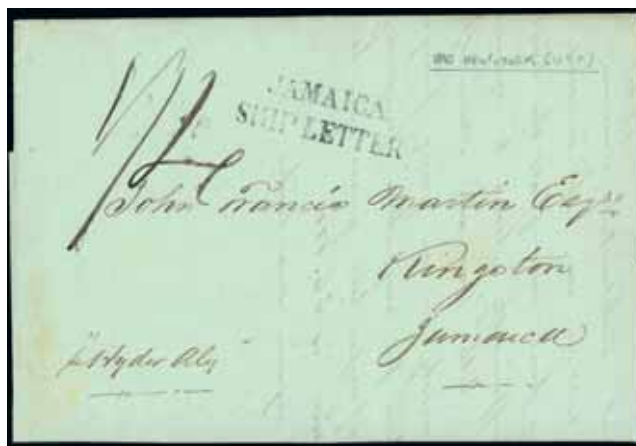 JAMAICA
SHIP LETTER
John Francis Martin Esqre
Kingston
Jamaica
"Hyder Aly"